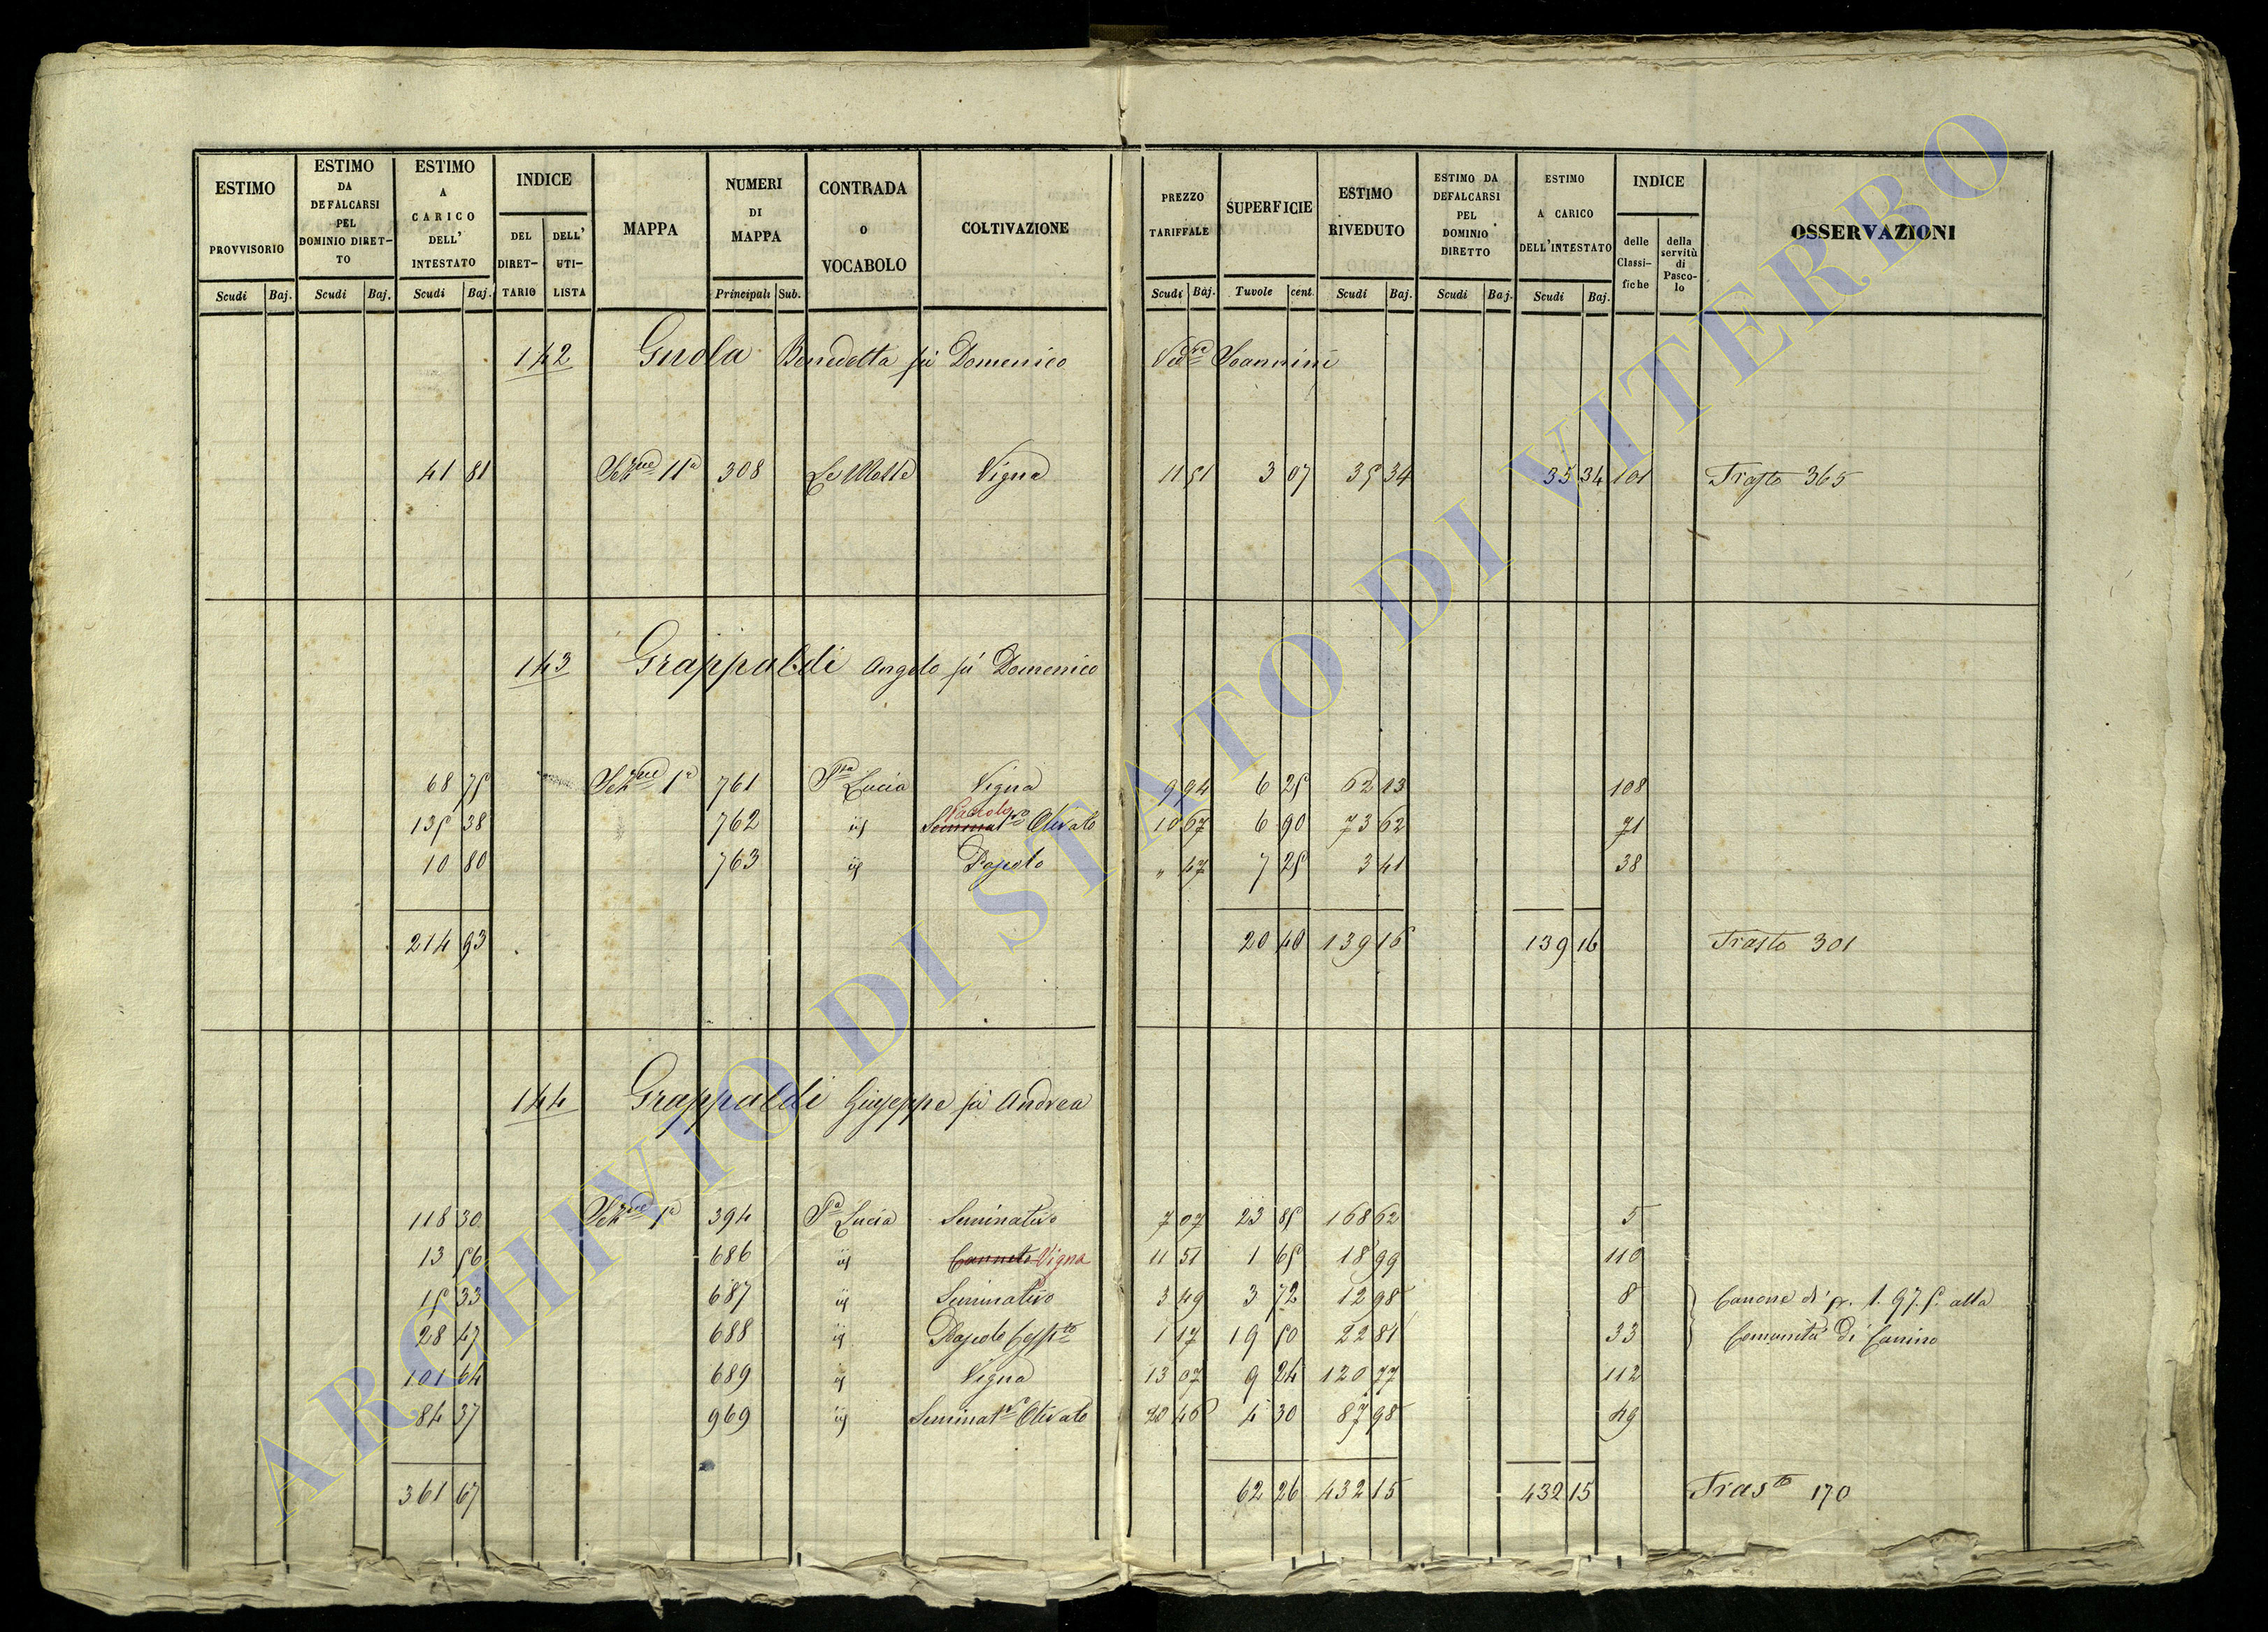 ESTIMO PROVVISORIO Scudi Baj.
ESTIMO DA DEFALCARSI PEL DOMINIO DIRET-TO Scudi Baj.
ESTIMO A CARICO DELL' INTESTATO Scudi Baj.
INDICE DEL DIRET-TARIO DELL' UTI-LISTA
MAPPA
NUMERI DI MAPPA Principali Sub.
CONTRADA O VOCABOLO
COLTIVAZIONE
PREZZO TARIFFALE Scudi Baj.
SUPERFICIE Tavole cent.
ESTIMO RIVEDUTO Scudi Baj.
ESTIMO DA DEFALCARSI PEL DOMINIO DIRETTO Scudi Baj.
ESTIMO A CARICO DELL'INTESTATO Scudi Baj.
INDICE delle Classi-fiche della servitù di Pasco-lo
OSSERVAZIONI
142 Guola Benedetta fù Domenico Ved.va Ioannini
41 81 Sez.ne 11a 308 Le Motte Vigna 11 51 3 07 35 34 35 34 101 Trasto 365
143 Grappaldi Angelo fù Domenico
68 75 Sez.ne 1a 761 S.ta Lucia Vigna 9 94 6 25 62 13 108
135 38 762 id Seminat.vo Pascolo Olivato 10 67 6 90 73 62 71
10 80 763 id Pascolo " 47 7 25 3 41 38
214 93 20 40 139 16 139 16 Trasto 301
144 Grappaldi Giuseppe fù Andrea
118 30 Sez.ne 1a 394 S.a Lucia Seminativo 7 07 23 85 168 62 5
13 56 686 id Canneto Vigna 11 51 1 65 18 99 110
15 33 687 id Seminativo 3 49 3 72 12 98 8 Canone di 1. 97. 5. alla
28 47 688 id Pascolo Cess.to 1 17 19 50 22 81 33 Comunità di Canino
101 64 689 id Vigna 13 07 9 24 120 77 112
84 37 969 id Seminat.vo Olivato 20 46 4 30 87 98 49
361 67 62 26 432 15 432 15 Trasto 170
ARCHIVIO DI STATO DI VITERBO